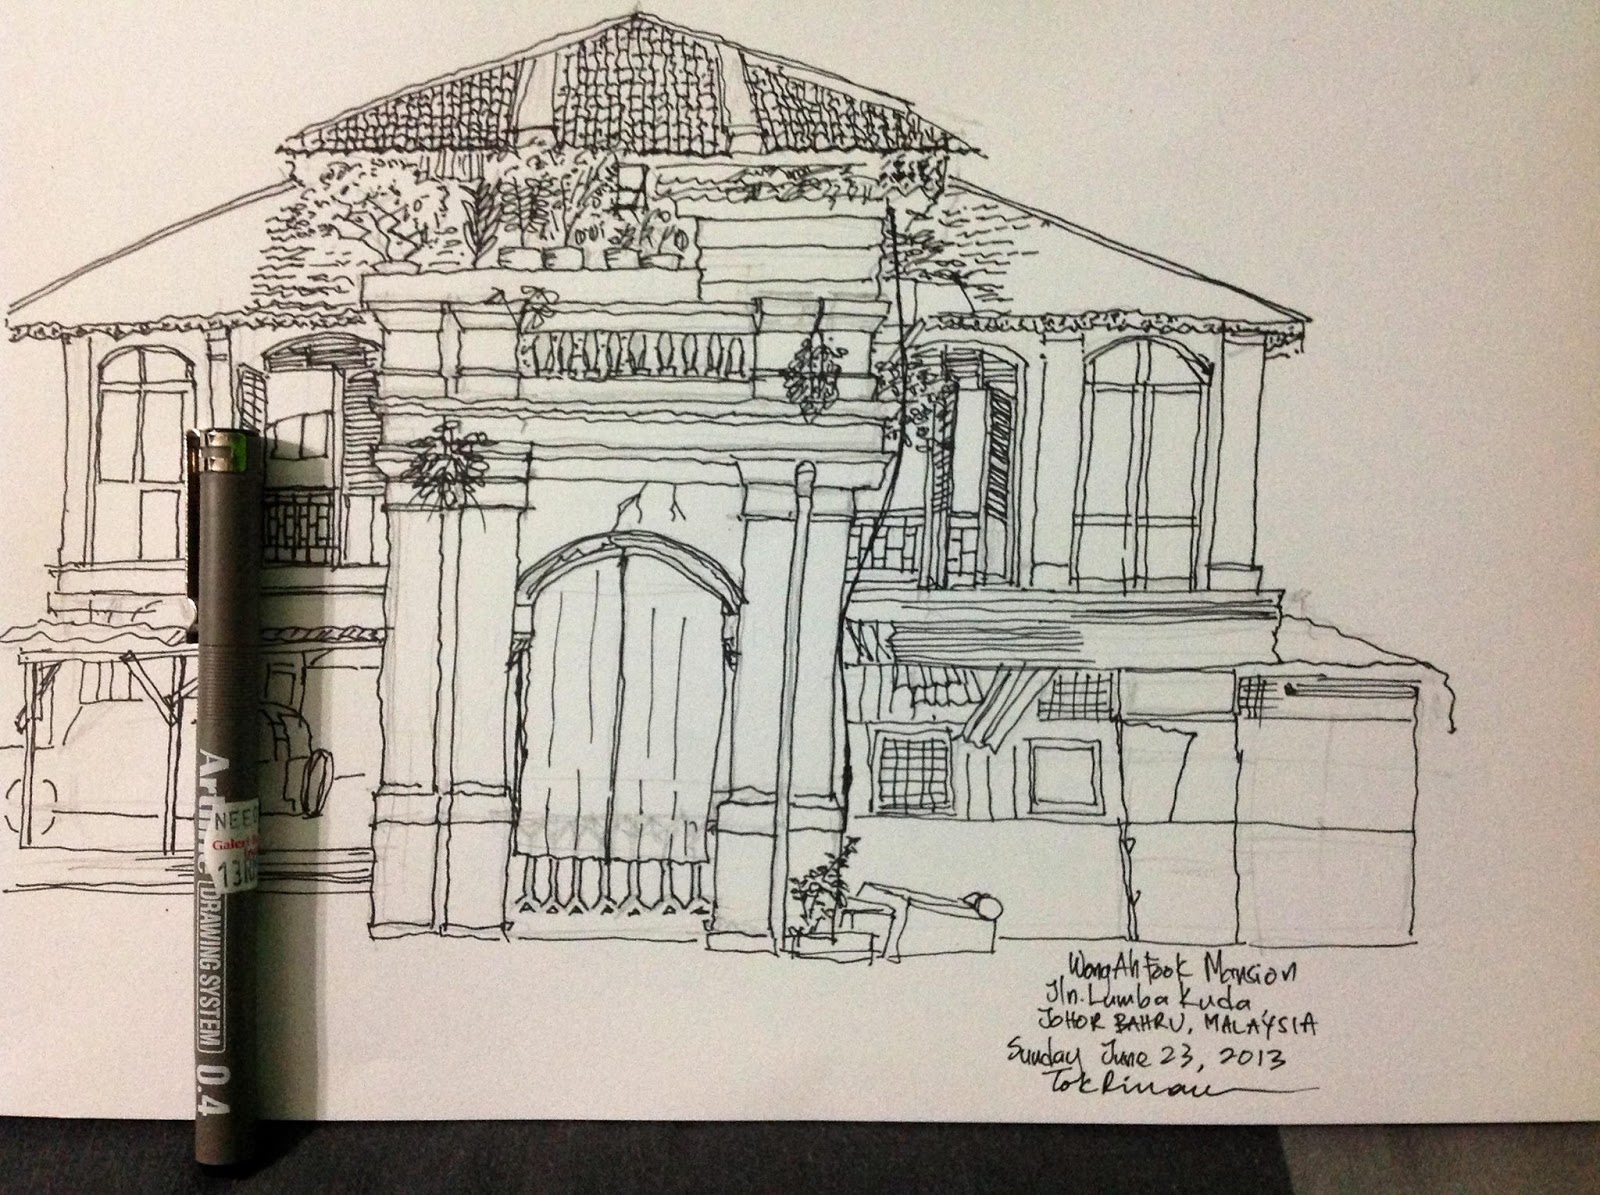 Wong Ah Fook Mansion
Jln. Lumba Kuda
JOHOR BAHRU, MALAYSIA
Sunday June 23, 2013
Artline DRAWING SYSTEM 0.4
NEED
Galeri